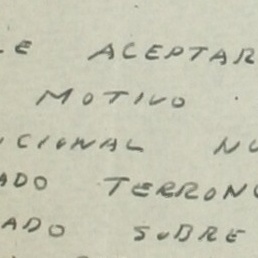 LE ACEPTAR
MOTIVO
NCIONAL NU
ADO TERRONO
ADO SOBRE